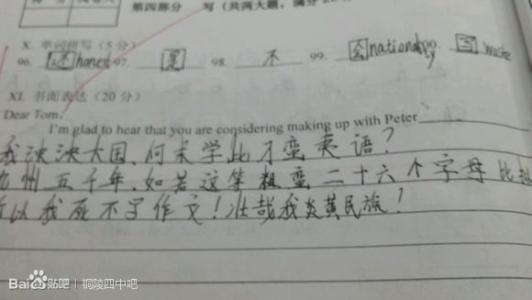 第四部分 写（共两大题，满分
X. 单词拼写（5分）
96. honest 97. 98. 不 99. nationality
XI. 书面表达（20分）
Dear Tom,
I'm glad to hear that you are considering making up with Peter
我泱泱大国，何未学此刁蛮英语？
九州五千年，如若这等粗蛮二十六个字母比
所以我死不写作文！壮哉我炎黄民族！
Bai 贴吧 | 铜陵四中吧